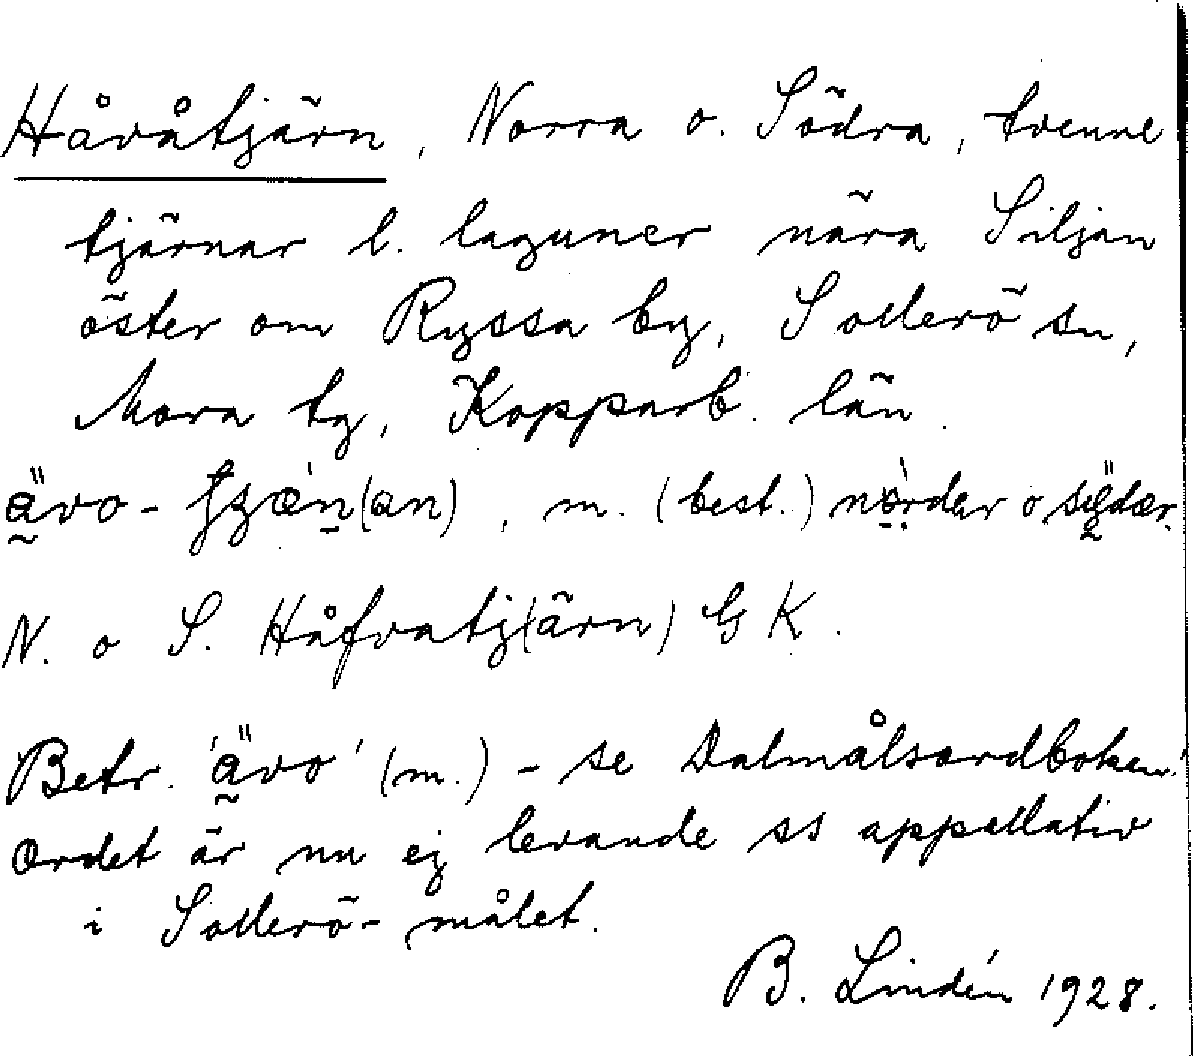 Håvåtjärn, Norra o. Södra, tvenne
tjärnar l. laguner nära Siljan
öster om Ryssa by, Sollerö sn,
Mora tg, Kopparb. län.
, m. (best.)
N. o S. Håfvatj(ärn) GK.
Betr. 'ävo' (m.) - se Dalmålsordboken!
Ordet är nu ej levande ss appellativ
i Sollerö-målet.
B. Lindén 1928.